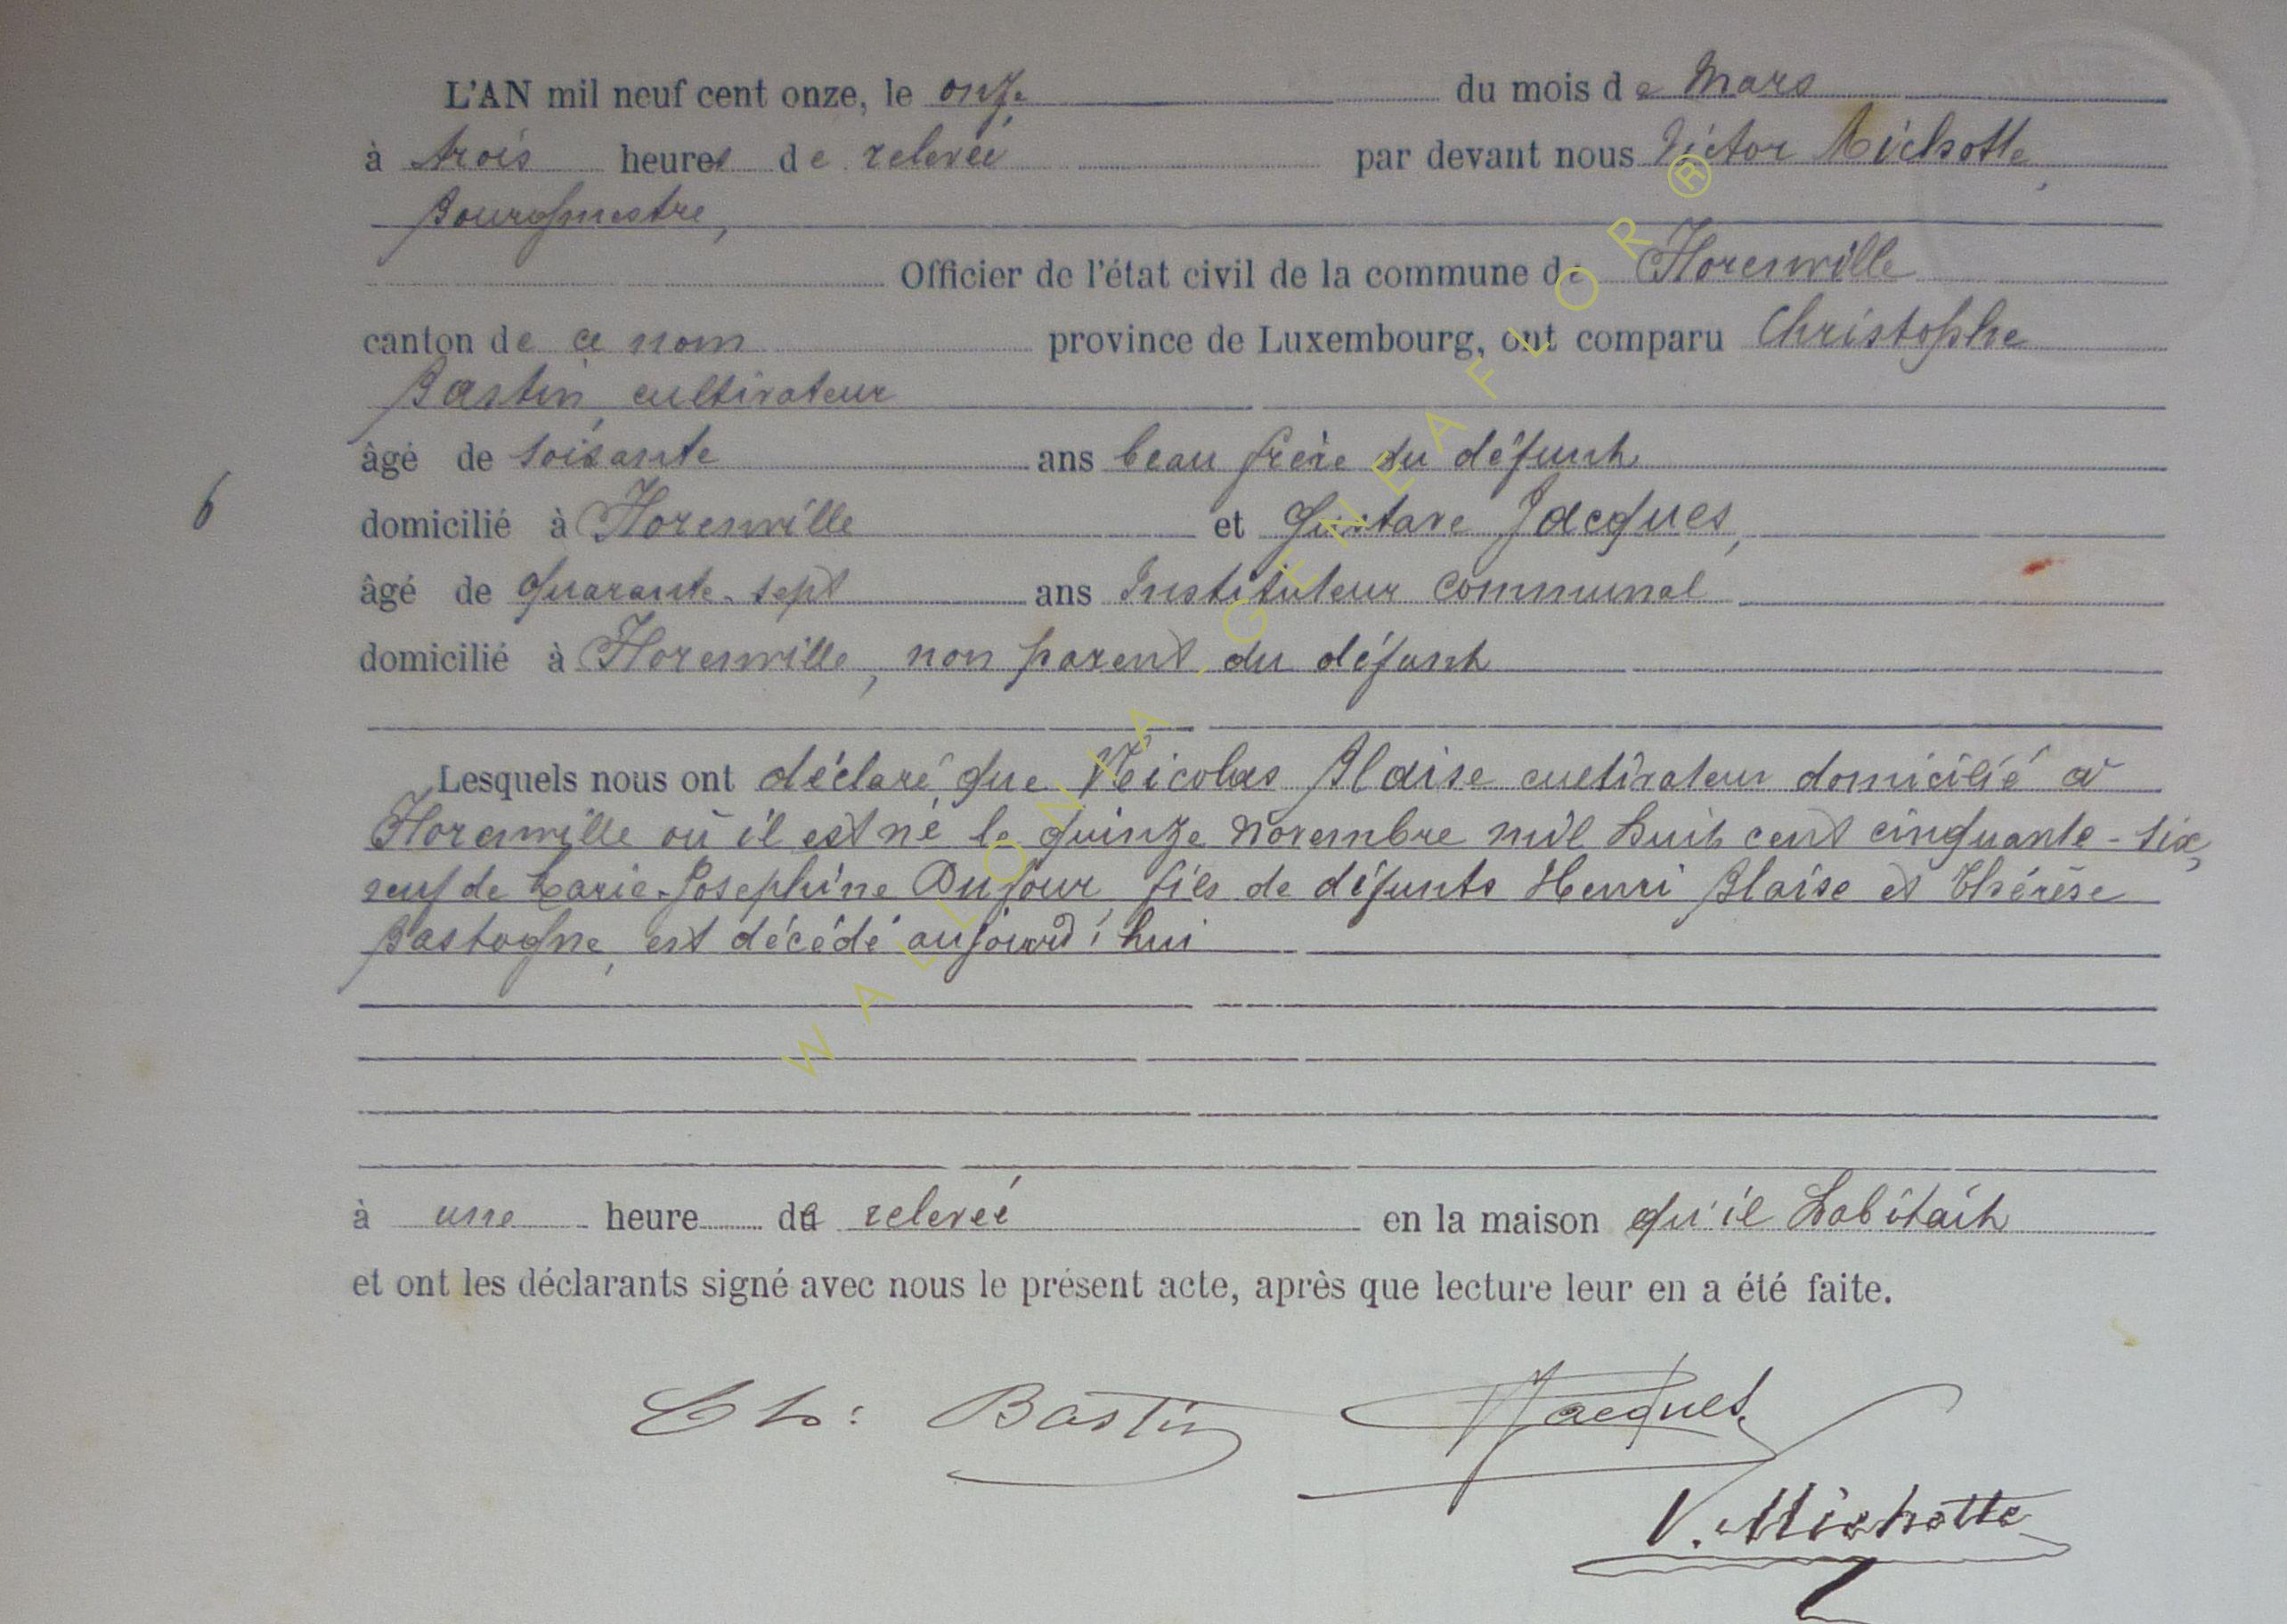 L'AN mil neuf cent onze, le onze du mois de Mars
à trois heures de relevée par devant nous Victor Michotte,
Bourgmestre,
Officier de l'état civil de la commune de Florenville
canton de ce nom province de Luxembourg, ont comparu Christophe
Bastin, cultivateur
âgé de soixante ans beau frère du défunt
6
domicilié à Florenville et Gustave Jacques,
âgé de quarante-sept ans Instituteur communal
domicilié à Florenville, non parent du défunt
Lesquels nous ont déclaré que Nicolas Blaise cultivateur domicilié à
Florenville où il est né le quinze novembre mil huit cent cinquante-six,
veuf de Marie-Joséphine Dufour, fils de défunts Henri Blaise et Thérèse
Bastogne, est décédé aujourd'hui
à une heure de relevée en la maison qu'il habitait
et ont les déclarants signé avec nous le présent acte, après que lecture leur en a été faite.
Ch: Bastin Jacques
V. Michotte
WALLONIA GENEAFLOR ®